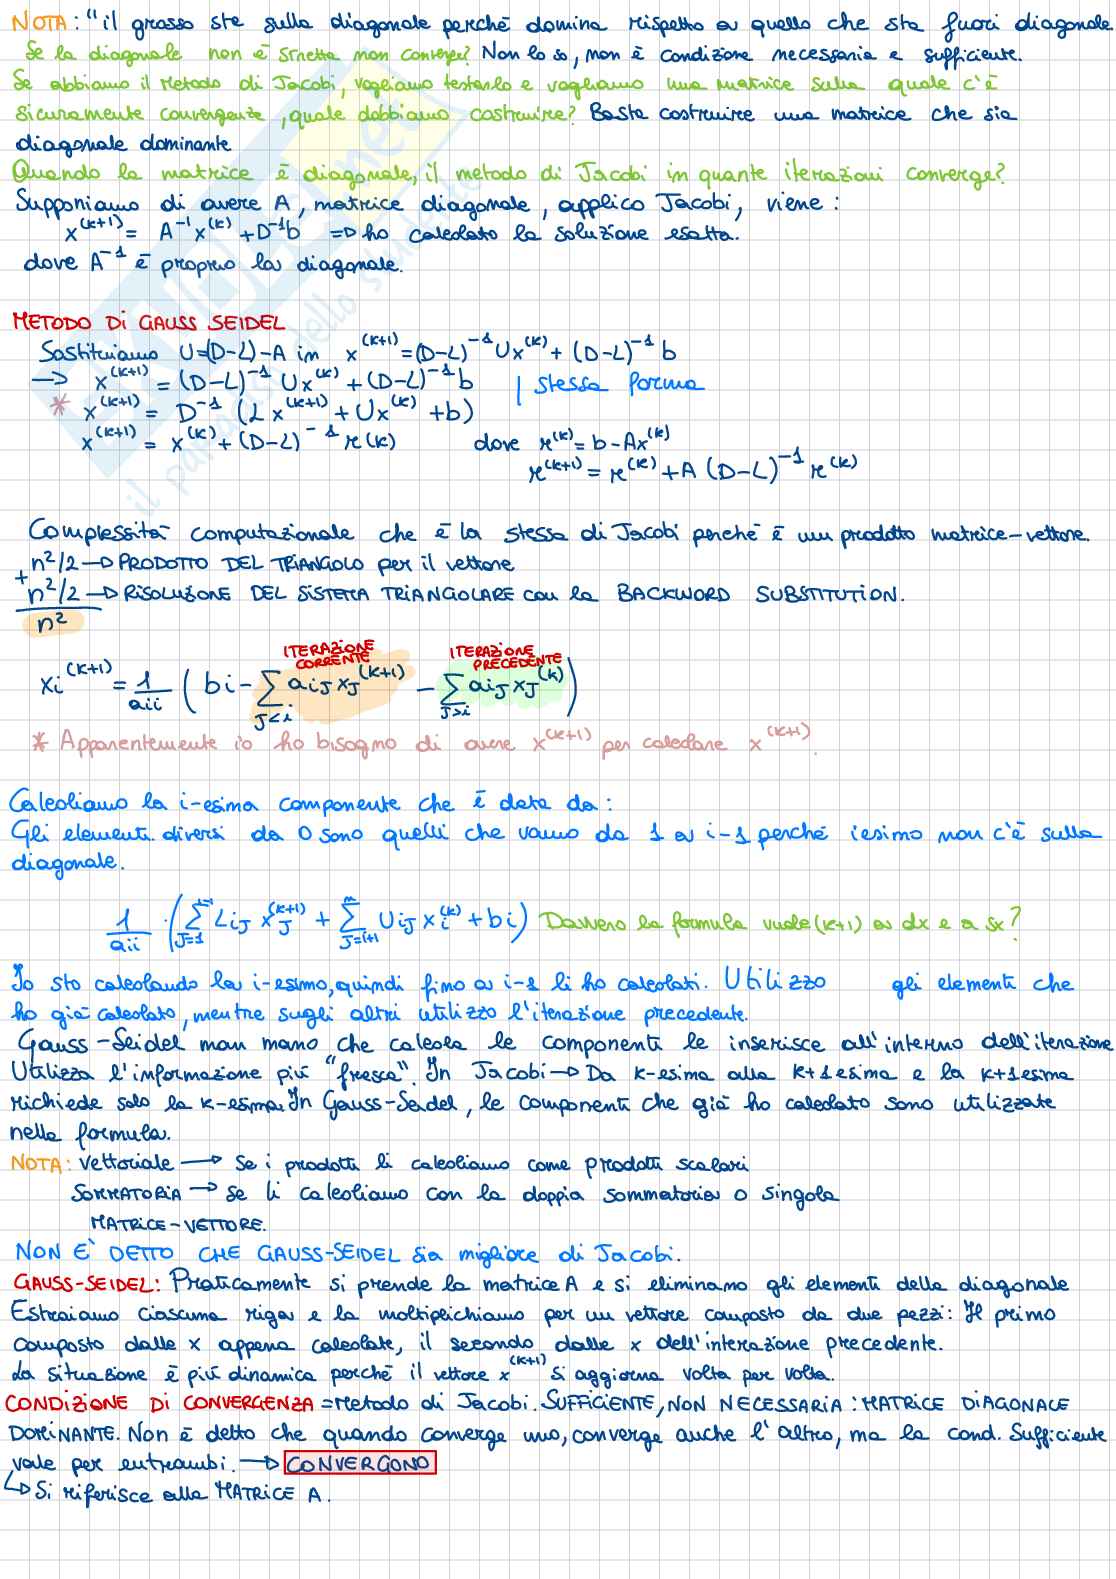 NOTA: "il grosso sta sulla diagonale perché domina rispetto a quello che sta fuori diagonale
Se la diagonale non è stretta non converge? Non lo so, non è condizione necessaria e sufficiente.
Se abbiamo il Metodo di Jacobi, vogliamo testarlo e vogliamo una matrice sulla quale c'è
sicuramente convergenza, quale dobbiamo costruire? Basta costruire una matrice che sia
diagonale dominante
Quando la matrice è diagonale, il metodo di Jacobi in quante iterazioni converge?
Supponiamo di avere A, matrice diagonale, applico Jacobi, viene:
x^(k+1) = A^-1 x^(k) + D^-1 b => ho calcolato la soluzione esatta.
dove A^-1 è proprio la diagonale.
METODO DI GAUSS SEIDEL
Sostituiamo U=(D-L)-A in x^(k+1) = (D-L)^-1 Ux^(k) + (D-L)^-1 b
→ x^(k+1) = (D-L)^-1 Ux^(k) + (D-L)^-1 b | stessa forma
* x^(k+1) = D^-1 (L x^(k+1) + Ux^(k) + b)
x^(k+1) = x^(k) + (D-L)^-1 r(k) dove r^(k) = b - Ax^(k)
r^(k+1) = r^(k) + A (D-L)^-1 r^(k)
Complessità computazionale che è la stessa di Jacobi perché è un prodotto matrice-vettore.
n²/2 → PRODOTTO DEL TRIANGOLO per il vettore
+ n²/2 → RISOLUZIONE DEL SISTEMA TRIANGOLARE con la BACKWORD SUBSTITUTION.
n²
ITERAZIONE CORRENTE ITERAZIONE PRECEDENTE
xi^(k+1) = 1/aii ( bi - ∑ j<i aij xj^(k+1) - ∑ j>i aij xj^(k) )
* Apparentemente io ho bisogno di avere x^(k+1) per calcolare x^(k+1).
Calcoliamo la i-esima componente che è data da:
Gli elementi diversi da 0 sono quelli che vanno da 1 a i-1 perché iesimo non c'è sulla
diagonale.
1/aii · ( ∑ j=1 i-1 Lij xj^(k+1) + ∑ j=i+1 n Uij xi^(k) + bi ) Davvero la formula vuole (k+1) a dx e a sx?
Io sto calcolando la i-esimo, quindi fino a i-1 li ho calcolati. Utilizzo gli elementi che
ho già calcolato, mentre sugli altri utilizzo l'iterazione precedente.
Gauss-Seidel man mano che calcola le componenti le inserisce all'interno dell'iterazione
Utilizza l'informazione più "fresca". In Jacobi → Da k-esima alla k+1esima e la k+1esima
richiede solo la k-esima. In Gauss-Seidel, le componenti che già ho calcolato sono utilizzate
nella formula.
NOTA: Vettoriale → Se i prodotti li calcoliamo come prodotti scalari
SOMMATORIA → Se li calcoliamo con la doppia sommatoria o singola
MATRICE-VETTORE.
NON È DETTO CHE GAUSS-SEIDEL sia migliore di Jacobi.
GAUSS-SEIDEL: Praticamente si prende la matrice A e si eliminano gli elementi della diagonale
Estraiamo ciascuna riga e la moltiplichiamo per un vettore composto da due pezzi: Il primo
composto dalle x appena calcolate, il secondo dalle x dell'interazione precedente.
La situazione è più dinamica perché il vettore x^(k+1) si aggiorna volta per volta.
CONDIZIONE DI CONVERGENZA = Metodo di Jacobi. SUFFICIENTE, NON NECESSARIA: MATRICE DIAGONALE
DOMINANTE. Non è detto che quando converge uno, converge anche l'altro, ma la cond. Sufficiente
vale per entrambi. → CONVERGONO
↳ Si riferisce alla MATRICE A.